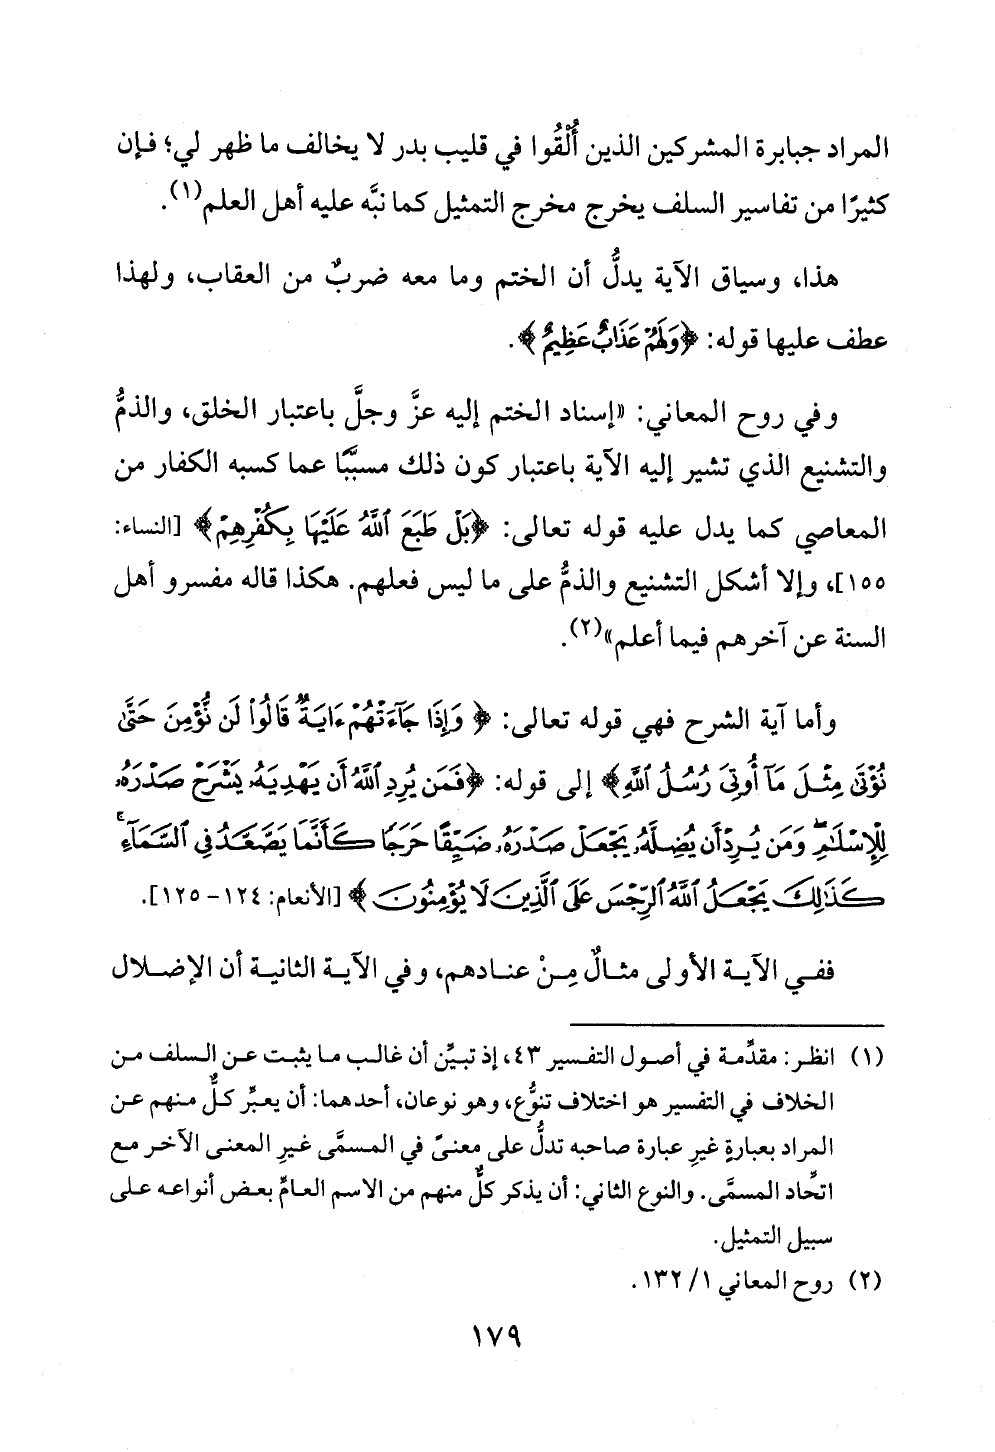 المراد جبابرة المشركين الذين أُلْقُوا في قليب بدر لا يخالف ما ظهر لي؛ فإن
كثيرًا من تفاسير السلف يخرج مخرج التمثيل كما نبَّه عليه أهل العلم(١).
هذا، وسياق الآية يدلُّ أن الختم وما معه ضربٌ من العقاب، ولهذا
عطف عليها قوله: ﴿وَلَهُمْ عَذَابٌ عَظِيمٌ﴾.
وفي روح المعاني: «إسناد الختم إليه عزَّ وجلَّ باعتبار الخلق، والذمُّ
والتشنيع الذي تشير إليه الآية باعتبار كون ذلك مسبَّبًا عما كسبه الكفار من
المعاصي كما يدل عليه قوله تعالى: ﴿بَلْ طَبَعَ ٱللَّهُ عَلَيْهَا بِكُفْرِهِمْ﴾ [النساء:
١٥٥]، وإلا أشكل التشنيع والذمُّ على ما ليس فعلهم. هكذا قاله مفسرو أهل
السنة عن آخرهم فيما أعلم»(٢).
وأما آية الشرح فهي قوله تعالى: ﴿وَإِذَا جَآءَتْهُمْ ءَايَةٌ قَالُواْ لَن نُّؤْمِنَ حَتَّىٰ
نُؤْتَىٰ مِثْلَ مَآ أُوتِىَ رُسُلُ ٱللَّهِ﴾ إلى قوله: ﴿فَمَن يُرِدِ ٱللَّهُ أَن يَهْدِيَهُۥ يَشْرَحْ صَدْرَهُۥ
لِلْإِسْلَـٰمِ ۖ وَمَن يُرِدْ أَن يُضِلَّهُۥ يَجْعَلْ صَدْرَهُۥ ضَيِّقًا حَرَجًا كَأَنَّمَا يَصَّعَّدُ فِى ٱلسَّمَآءِ ۚ
كَذَٰلِكَ يَجْعَلُ ٱللَّهُ ٱلرِّجْسَ عَلَى ٱلَّذِينَ لَا يُؤْمِنُونَ﴾ [الأنعام: ١٢٤ – ١٢٥].
ففي الآية الأولى مثالٌ مِنْ عنادهم، وفي الآية الثانية أن الإضلال
(١) انظر: مقدِّمة في أصول التفسير ٤٣، إذ تبيِّن أن غالب ما يثبت عن السلف من
الخلاف في التفسير هو اختلاف تنوُّع، وهو نوعان، أحدهما: أن يعبِّر كلٌّ منهم عن
المراد بعبارةٍ غيرِ عبارة صاحبه تدلُّ على معنىً في المسمَّى غيرِ المعنى الآخر مع
اتحِّاد المسمَّى. والنوع الثاني: أن يذكر كلٌّ منهم من الاسم العامِّ بعض أنواعه على
سبيل التمثيل.
(٢) روح المعاني ١/ ١٣٢.
١٧٩